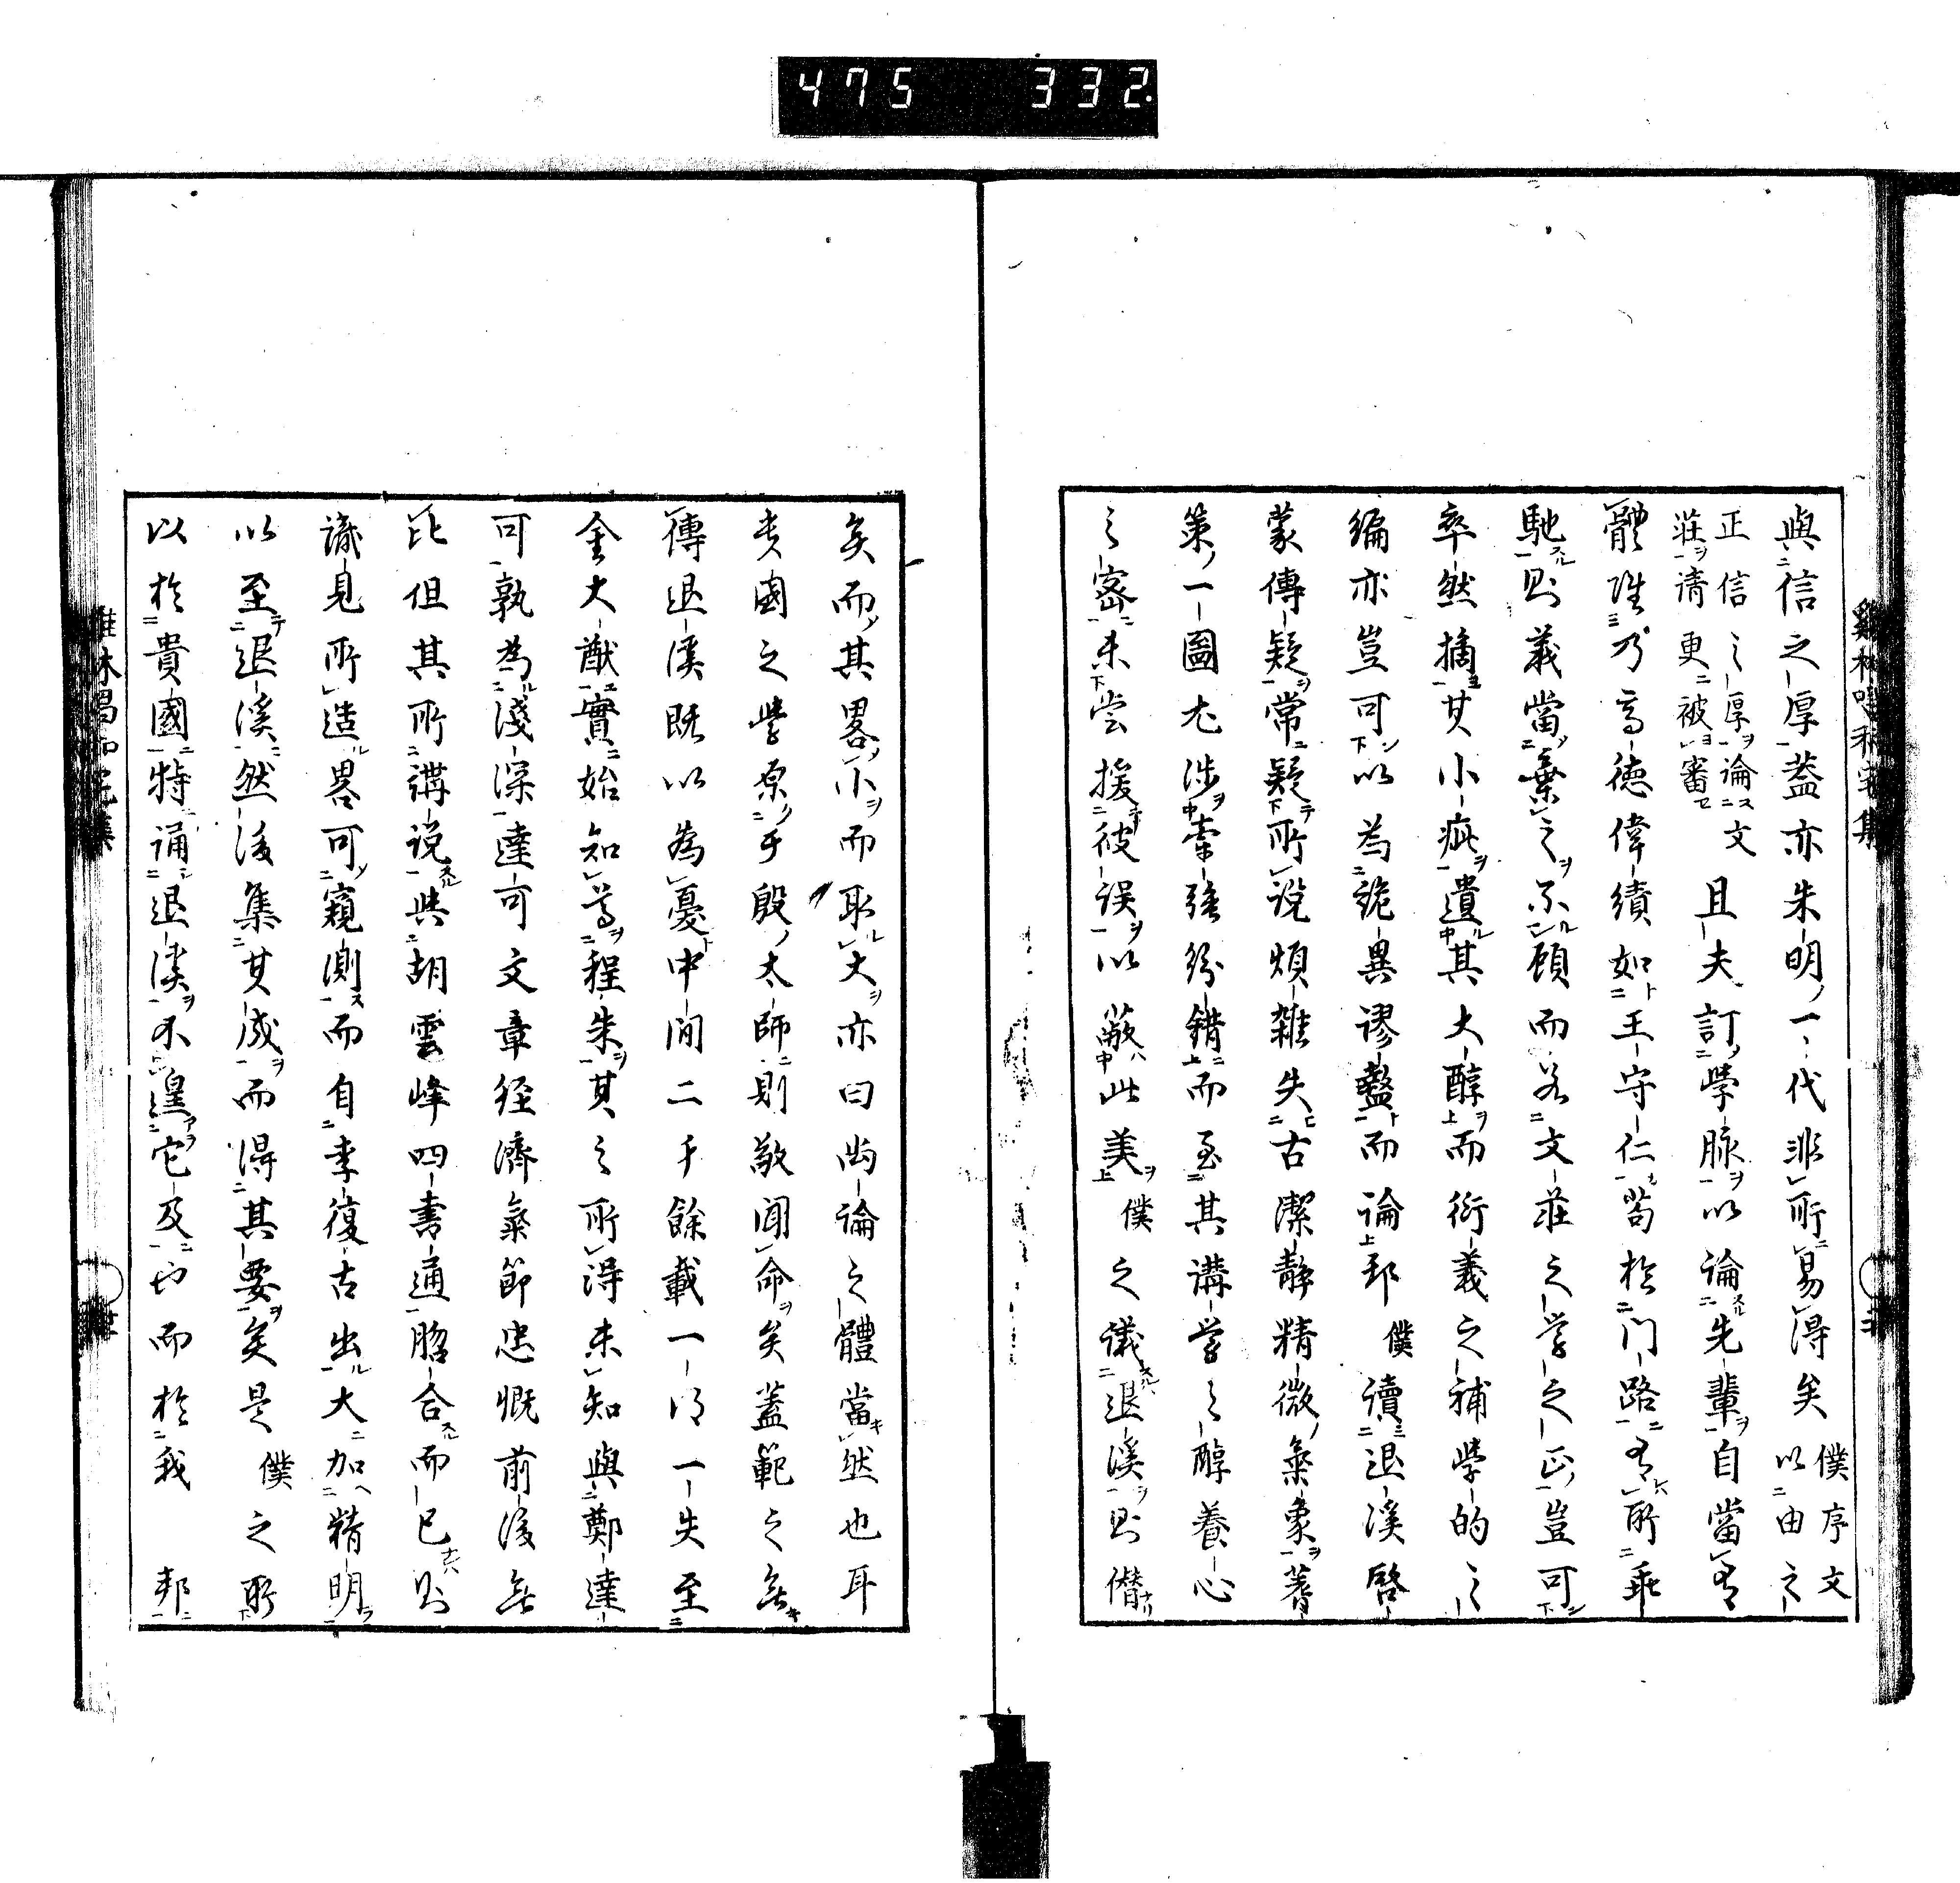 475 332.
與信之厚蓋亦朱明一代非所易得矣 僕序文以由之
正信之厚論文莊請更被審 且夫訂學脉以論先輩自當有
體雖乃高德偉績如王守仁苟於門路有所乖
馳則義當棄之不顧而若文莊之学之正豈可
率然摘其小疵遺其大醇而衍義之補學的之
編亦豈可以為詭異謬盭而論耶 僕讀退溪啓
蒙傳疑常疑所說煩雜失古潔靜精微氣象蓍
策一圖尤涉牽強紛錯而至其講学之醇養心
之密未嘗援彼誤以蔽此美 僕之議退溪則僭
矣而其畧小而取大亦曰尚論之體當然也耳
貴國之學原乎殷太師則敬聞命矣蓋範之無
傳退溪既以為憂中間二千餘載一得一失至
金大猷實始知尊程朱其之所得未知與鄭達
可孰為淺深達可文章經濟氣節忠慨前後無
比但其所講說與胡雲峰四書通脗合而已則
識見所造畧可窺測而自李復古出大加精明
以至退溪然後集其成而得其要矣是 僕之所
以於貴國特誦退溪不遑它及也而於我 邦